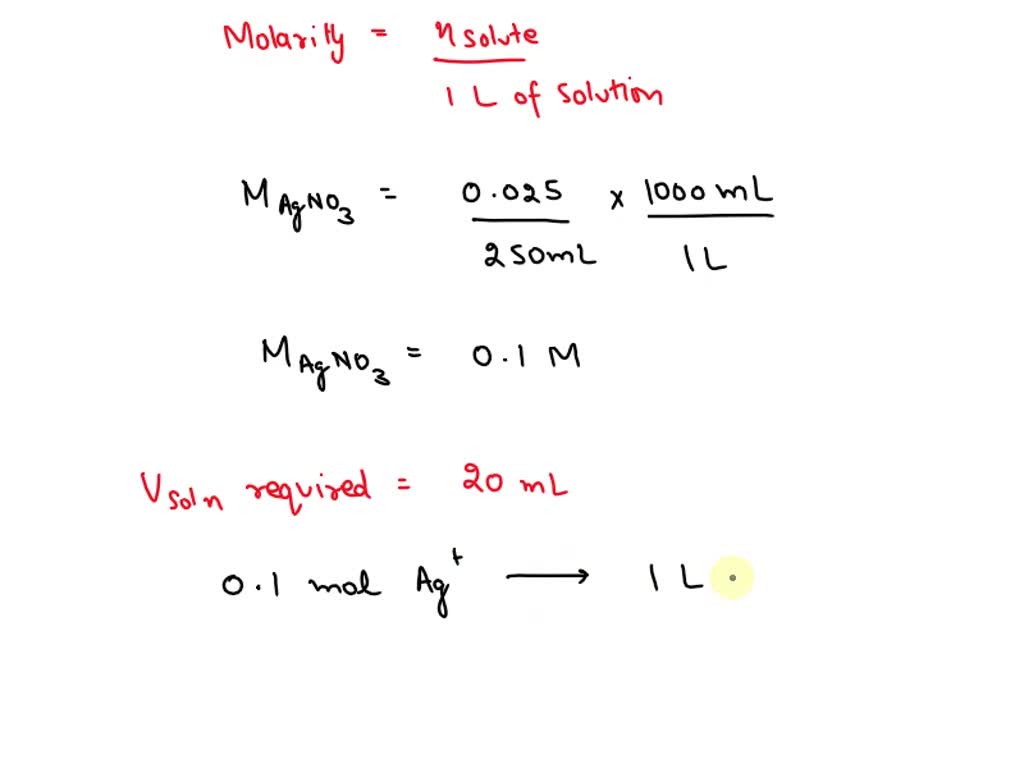 Molarity = n solute
1 L of solution
M AgNO3 = 0.025 x 1000 mL
250 mL 1 L
M AgNO3 = 0.1 M
V soln required = 20 mL
0.1 mol Ag+ → 1 L